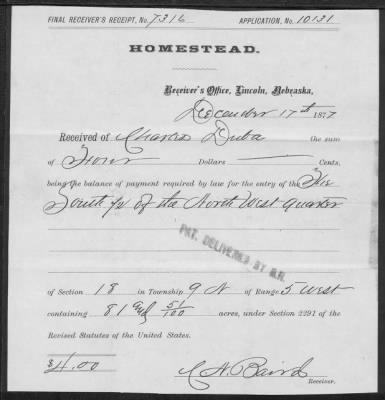 FINAL RECEIVER'S RECEIPT, No. 7316 APPLICATION, No. 10131
HOMESTEAD.
Receiver's Office, Lincoln, Nebraska,
December 17th 1877
Received of Charles Duba the sum
of Four Dollars Cents,
being the balance of payment required by law for the entry of the The
South ½ of the North West quarter
PAT. DELIVERED BY
of Section 18 in Township 9 N of Range 5 West
containing 81 and 51/100 acres, under Section 2291 of the
Revised Statutes of the United States.
$4.00
C A. Baird
Receiver.